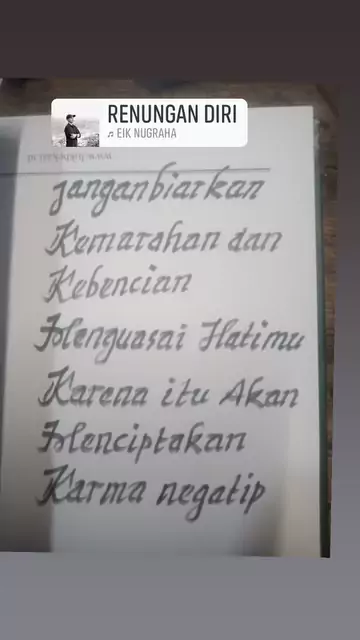 RENUNGAN DIRI
♬ EIK NUGRAHA
janganbiarkan
Kemarahan dan
Kebencian
Menguasai Hatimu
Karena itu Akan
Menciptakan
Karma negatip